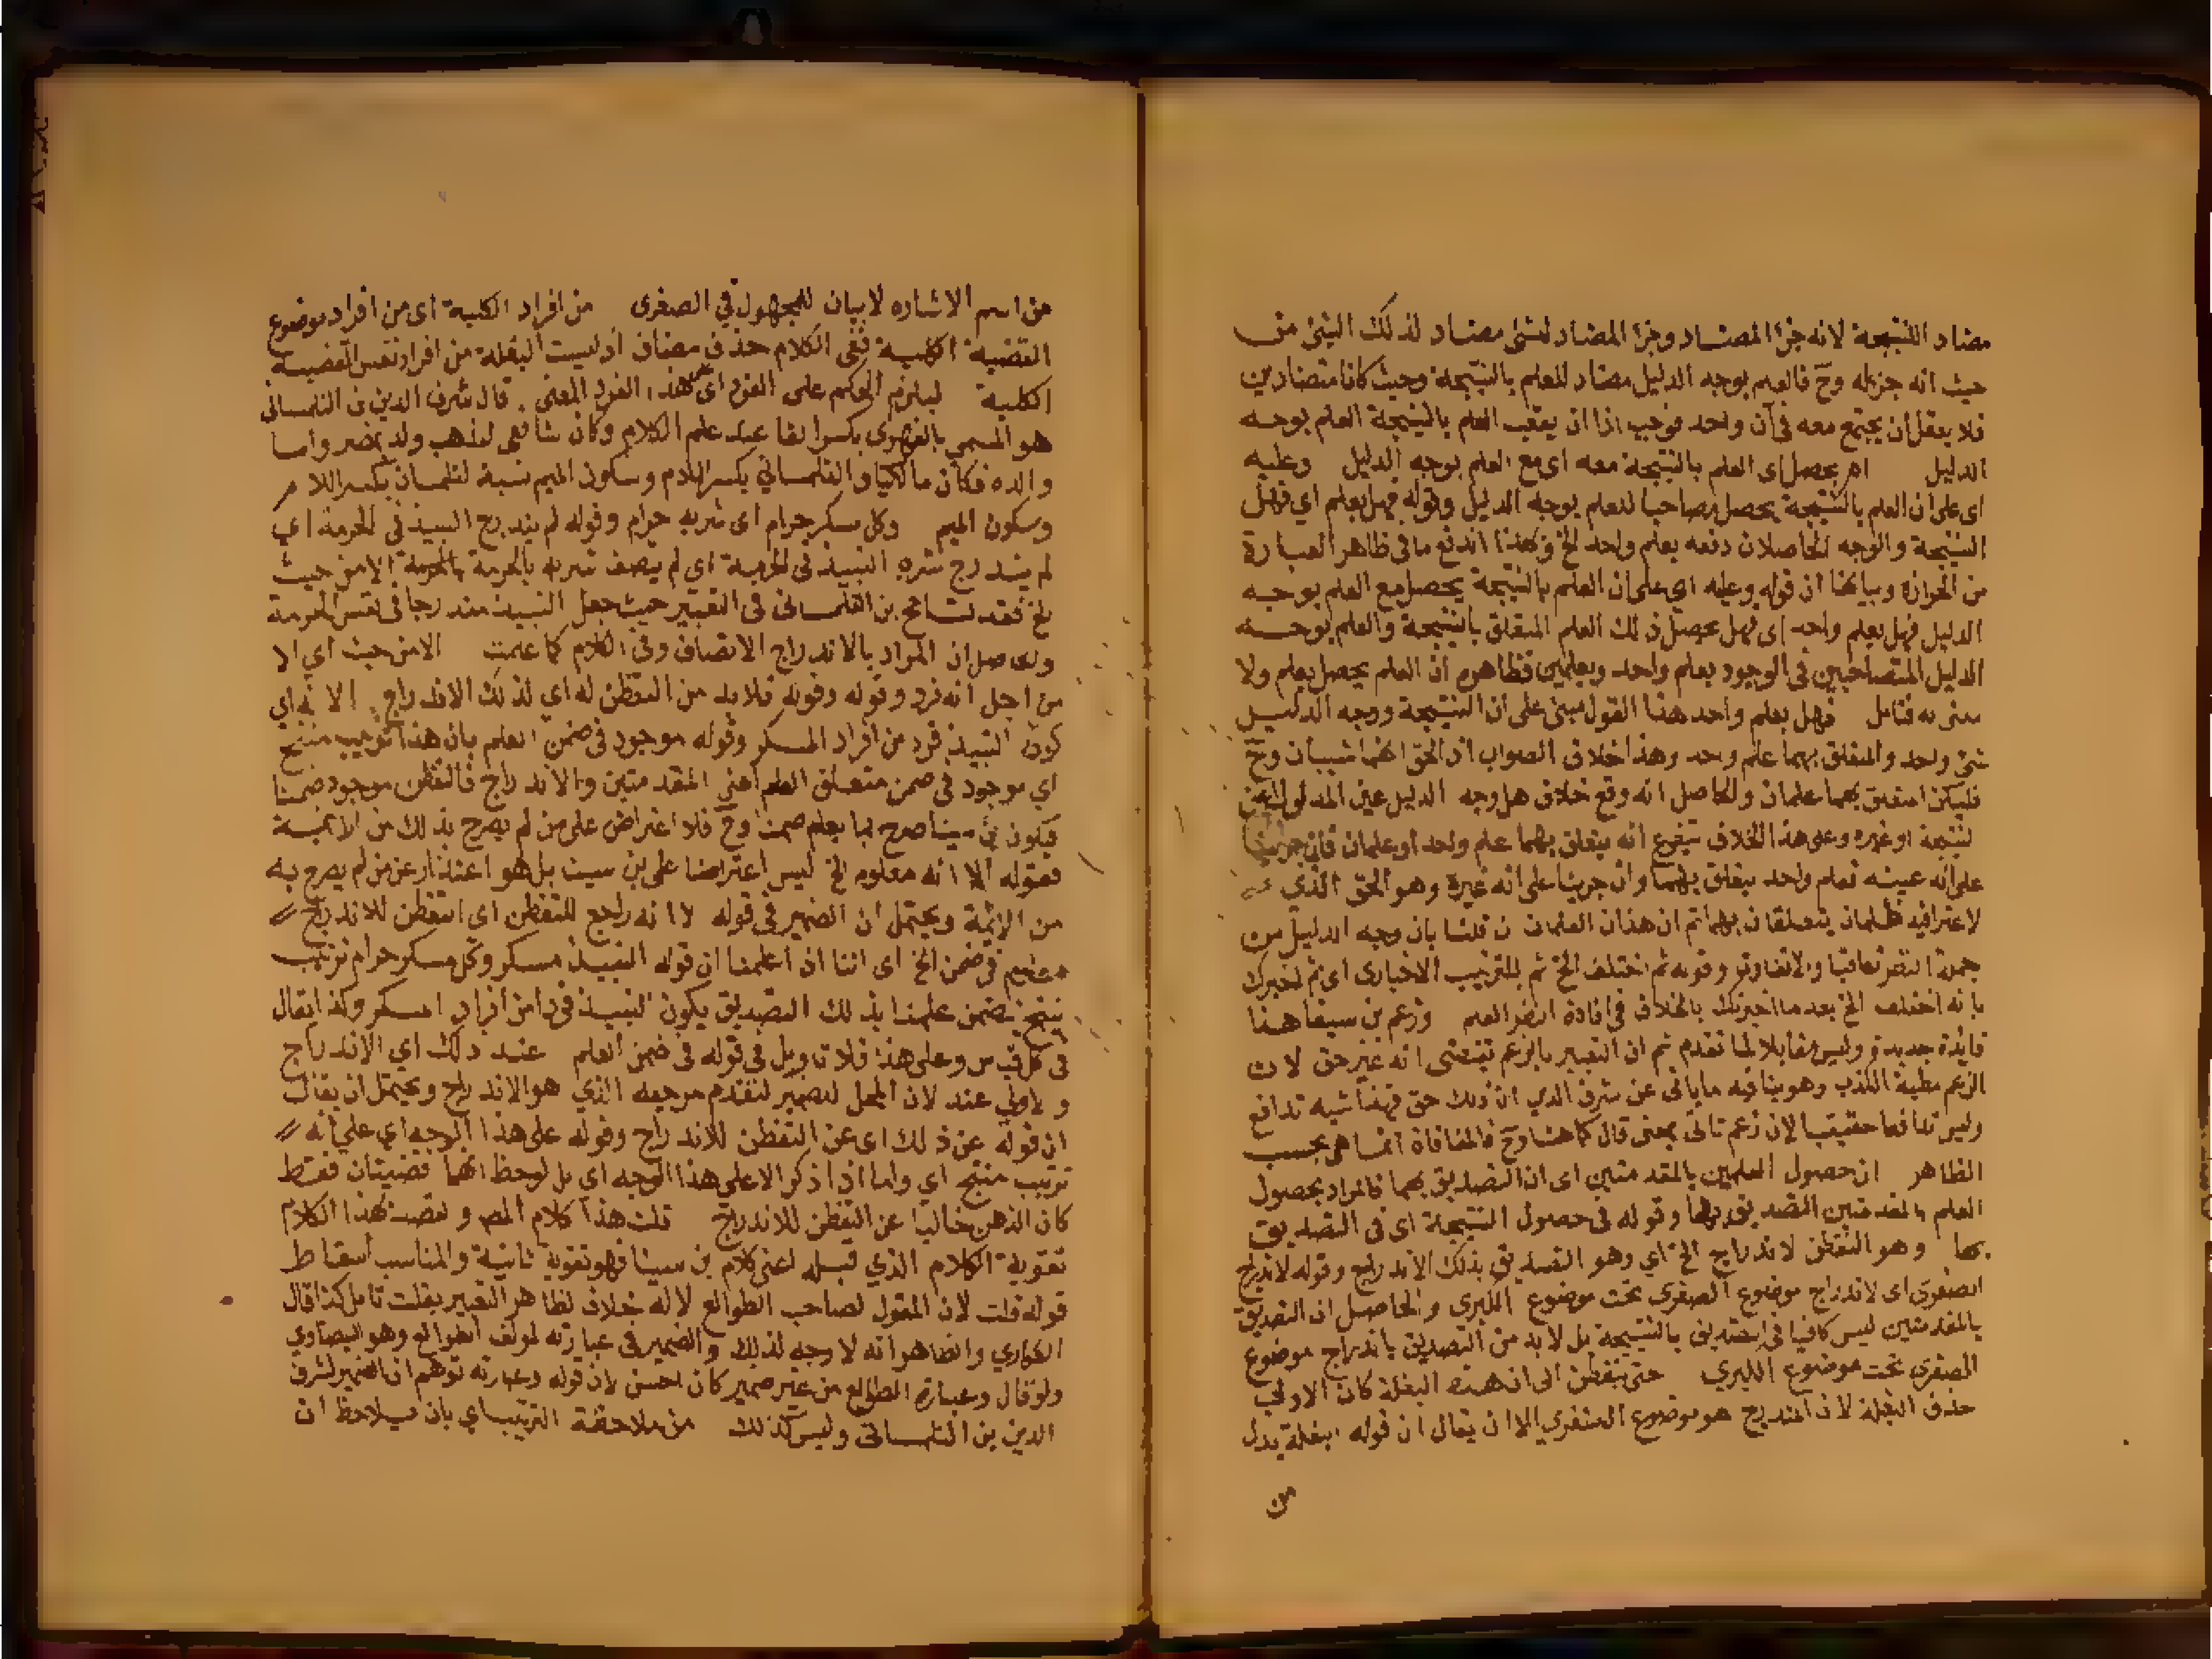 مضاد للنتيجة لانه جزأ المضاد وجزأ المضاد لشئ مضاد لذلك الشئ من
حيث انه جزء له وح فالعلم بوجه الدليل مضاد للعلم بالنتيجة وحيث كانا متضادين
فلا يعقل ان يجتمع معه في آن واحد فوجب اذا ان يعقب العلم بالنتيجة العلم بوجه
الدليل اهر يحصل اى العلم بالنتيجة معه اى مع العلم بوجه الدليل وعليه
اى على ان العلم بالنتيجة يحصل مصاحبا للعلم بوجه الدليل وقوله فهل بعلم اي فهل
النتيجة والوجه الحاصلان دفعه بعلم واحد الخ وبهذا اندفع ما في ظاهر العبارة
من الحزازة وبيانها ان قوله وعليه اي على ان العلم بالنتيجة يحصل مع العلم بوجه
الدليل فهل بعلم واحد اى فهل يحصل ذلك العلم المتعلق بالنتيجة والعلم بوجه
الدليل المتصاحبين في الوجود بعلم واحد وبعلمين فظاهره ان العلم يحصل بعلم ولا
معنى له فتامل فهل بعلم واحد هذا القول مبنى على ان النتيجة ووجه الدليل
شئ واحد والمتعلق بهما علم واحد وهذا خلاف الصواب اذ الحق انهما شيان وح
فليكن المتعلق بهما علمان والحاصل انه وقع خلاف هل وجه الدليل عين المدلول اعنى
النتيجة او غيره وعلى هذا الخلاف يتفرع انه يتعلق بهما علم واحد او علمان فان جرينا
على انه عينه فعلم واحد يتعلق بهما وان جرينا على انه غيره وهو الحق الذي
لا عتراف فيه فعلمان يتعلقان بهما ثم ان هذان العلمان ان قلنا بان وجه الدليل من
جملة النظر تعاقبا والا تقاوتر وقوله ثم اختلف الخ ثم للترتيب الاخبارى اى ثم اخبرك
بانه اختلف الخ بعد ما اخبرتك بالخلاف في افادة النظر العلم وزعم بن سينا هذا
فائدة جديدة وليس مقابلا لما تقدم ثم ان التعبير بالزعم تقتضى انه غير حق لان
الزعم مطية الكذب وهو ينافيه ما ياتى عن شرف الدين ان ذلك حق فهنا شبه تدافع
وليس تدافعا حقيقيا لان زعم تاتى بمعنى قال كما هنا وح فالمنافاة انما هى بحسب
الظاهر ان حصول العلمين بالمقدمتين اى ان التصديق بهما فالمراد بحصول
العلم بالمقدمتين التصديق بهما وقوله فى حصول النتيجة اى فى التصديق
بها وهو التفطن لاندراج الخ اي وهو التصديق بذلك الاندراج وقوله لاندراج
الصغرى اى لاندراج موضوع الصغرى تحت موضوع الكبرى والحاصل ان التصديق
بالمقدمتين ليس كافيا في التصديق بالنتيجة بل لا بد من التصديق باندراج موضوع
الصغرى تحت موضوع الكبرى حتى يتفطن الى ان هذه البغلة كان الاولى
حذف البغلة لان المندرج هو موضوع الصغرى الا ان يقال ان قوله البغلة بدل
من
من اسم الاشاره لا بيان للمجهول في الصغرى من افراد الكلية اى من افراد موضوع
القضية الكلية ففى الكلام حذف مضاف اذ ليست البغلة من افراد نفس القضية
الكلية ليلزم الحكم على الفرد اى هذا الفرد المعنى قال شرف الدين بن التلمسانى
هو المسمى بالفهرى بكسر الفا عبد علم الكلام وكان شافعى المذهب ولد بمصر واما
والده فكان مالكيا والتلمسانى بكسر اللام وسكون الميم نسبة لتلمسان بكسر اللام
وسكون الميم وكل مسكر حرام اى شربه حرام وقوله لم يندرج النبيذ فى الحرمة اى
لم يندرج شربه النبيذ فى الحرمة اى لم يتصف شربه بالحرمة الا من حيث
الخ فقد تسامح بن التلمسانى فى التعبير حيث جعل النبيذ مندرجا فى نفس الحرمة
والحاصل ان المراد بالاندراج الاتصاف وفى الكلام كما علمت الا من حيث اى الا
من اجل انه فرد وقوله وقوله فلا بد من التفطن له اى لذلك الاندراج الا انه اى
كون النبيذ فرد من افراد المسكر وقوله موجود فى ضمن العلم بان هذا ترتيب منتج
اي موجود فى ضمن متعلق العلم اعنى المقدمتين والاندراج فالتفطن موجود ضمنا
فيكون بن سينا صرح بما يعلم ضمنا وح فلا اعتراض على من لم يصرح بذلك من الائمة
فقوله الا انه معلوم الخ ليس اعتراضا على بن سينا بل هو اعتذار عن من لم يصرح به
من الائمة ويحتمل ان الضمير فى قوله لا انه راجع للتفطن اى التفطن للاندراج
فى ضمن الخ اى اننا اذا علمنا ان قوله النبيذ مسكر وكل مسكر حرام ترتيب
ينتج تضمن علمنا بذلك التصديق يكون النبيذ فردا من افراد المسكر وكذا يقال
فى كل قياس وعلى هذا فلا تاويل فى قوله فى ضمن العلم عند ذلك اي الاندراج
والاولى عنده لان المحل للضمير لتقدم مرجعه الذي هو الاندراج ويحتمل ان يقال
ان قوله عن ذلك اى عن التفطن للاندراج وقوله على هذا الوجه اي على انه
ترتيب منتج اي واما اذا ذكر الا على هذا الوجه اى بل لوحظ انهما قضيتان فقط
كان الذهن خاليا عن التفطن للاندراج قلت هذا كلام المص وقصد بهذا الكلام
تقوية الكلام الذي قبله اعنى كلام بن سينا فهو تقوية ثانية والمناسب اسقاط
قوله قلت لان المقول لصاحب الطوالع لا له خلاف لظاهر التعبير بقلت تامل كذا قال
العكارى والظاهر انه لا وجه لذلك والضمير فى عبارته لمولف الطوالع وهو البيضاوي
ولو قال وعبارة الطوالع من غير ضمير كان احسن لان قوله وعبارته توهم ان الضمير لشرف
الدين بن التلمسانى وليس كذلك من ملاحظة الترتيب اي بان يلاحظ ان